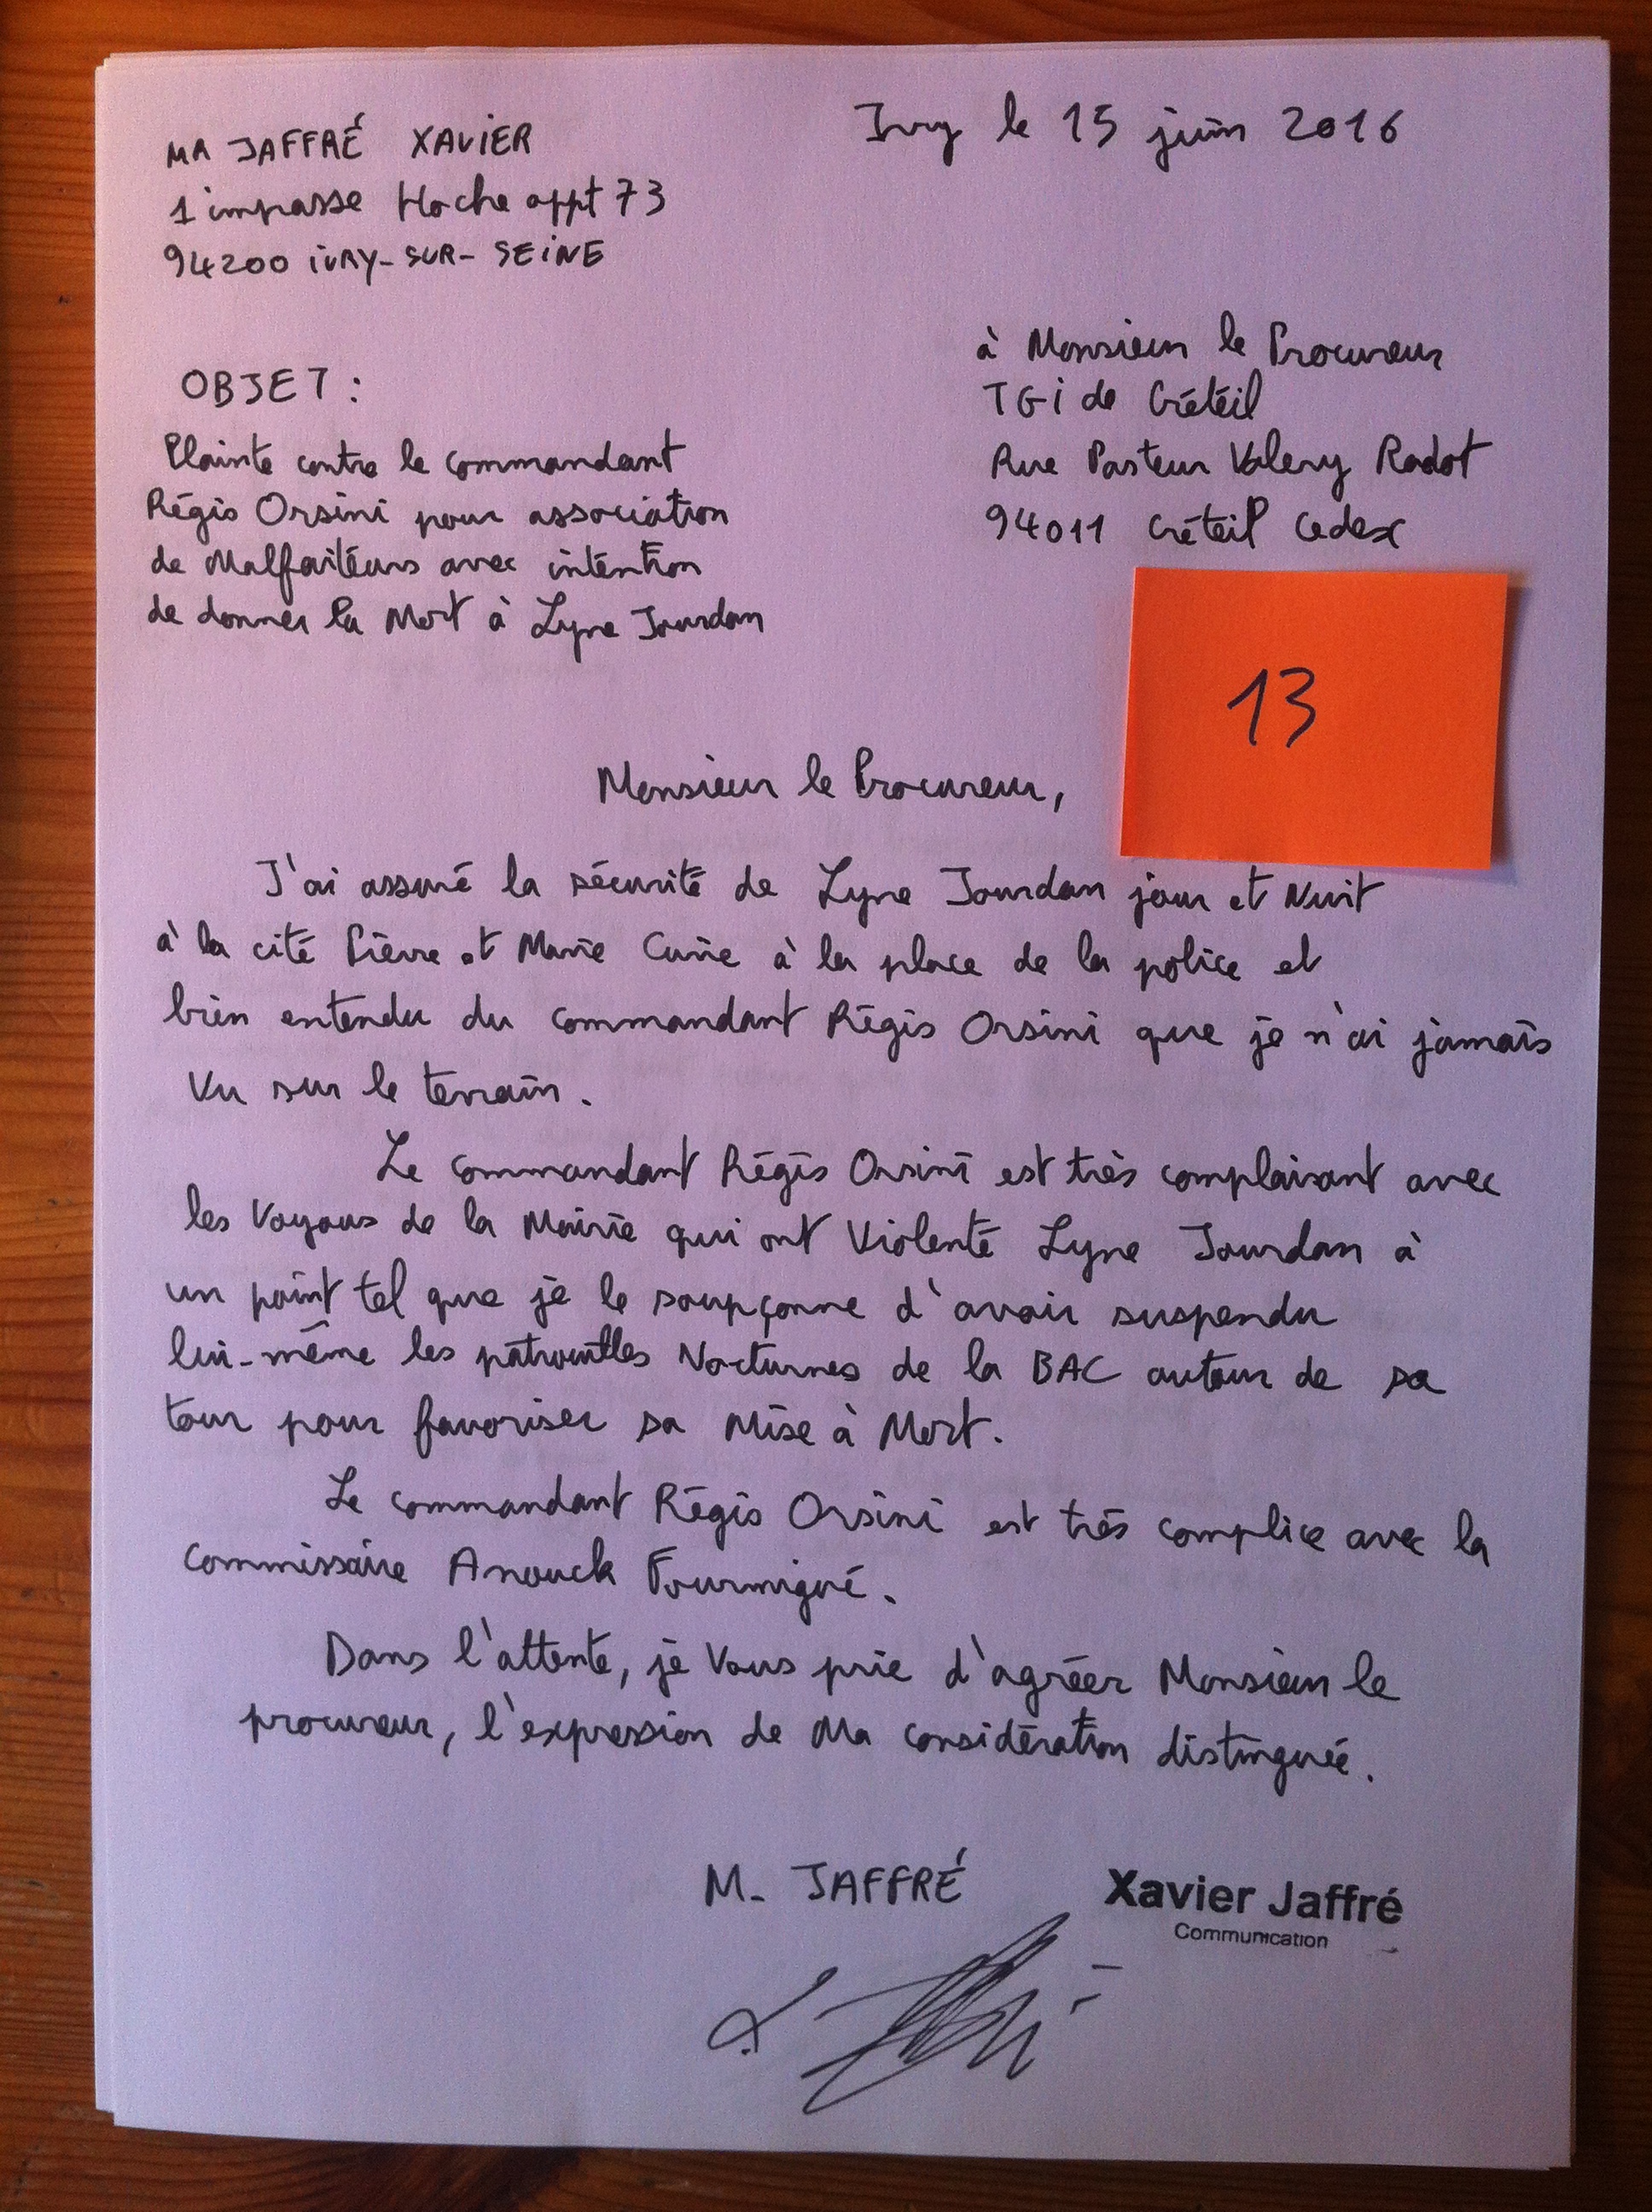 MR JAFFRÉ XAVIER
1 impasse Hoche appt 73
94200 IVRY-SUR-SEINE
Ivry le 15 juin 2016
à Monsieur le Procureur
TGI de Créteil
Rue Pasteur Valery Radot
94011 Créteil Cedex
OBJET :
Plainte contre le commandant
Régis Orsini pour association
de Malfaiteurs avec intention
de donner la Mort à Lyne Jourdan
13
Monsieur le Procureur,
J'ai assuré la sécurité de Lyne Jourdan jour et Nuit
à la cité Pierre et Marie Curie à la place de la police et
bien entendu du commandant Régis Orsini que je n'ai jamais
Vu sur le terrain.
Le commandant Régis Orsini est très complaisant avec
les Voyous de la Mairie qui ont Violenté Lyne Jourdan à
un point tel que je le soupçonne d'avoir suspendu
lui-même les patrouilles Nocturnes de la BAC autour de sa
tour pour favoriser sa Mise à Mort.
Le commandant Régis Orsini est très complice avec la
commissaire Anouck Fourmigué.
Dans l'attente, je Vous prie d'agréer Monsieur le
procureur, l'expression de Ma considération distinguée.
M. JAFFRÉ
Xavier Jaffré
Communication